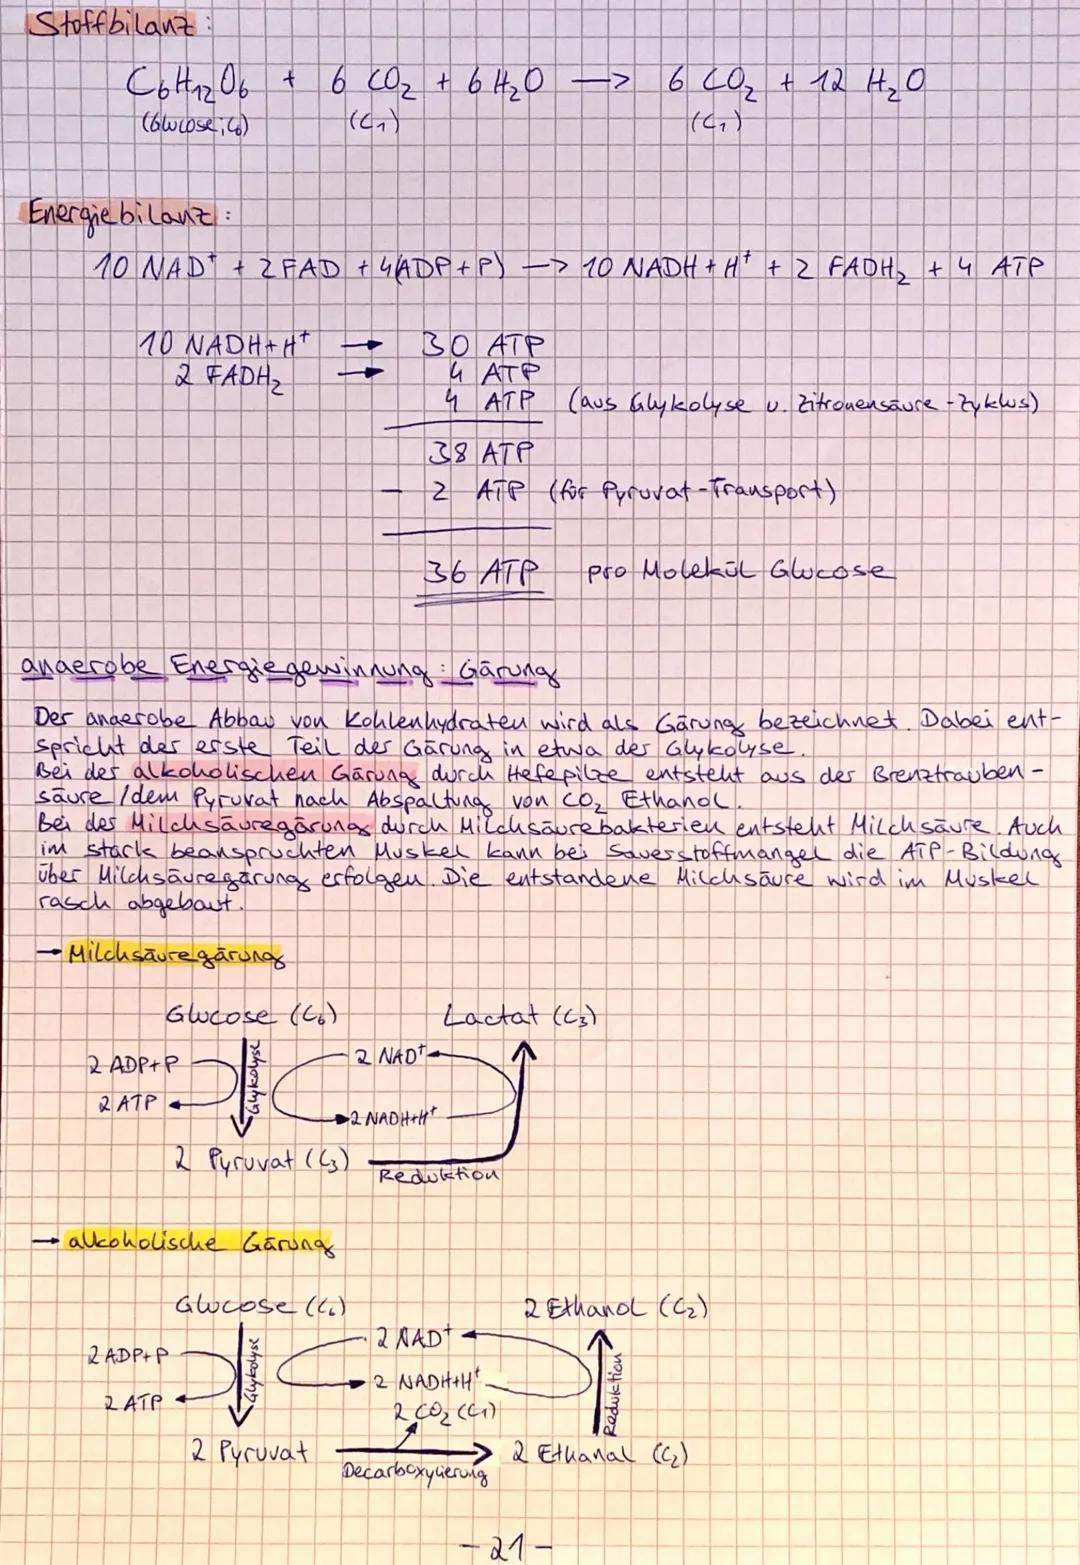 Stoffbilanz:
C₆H₁₂O₆ + 6 CO₂ + 6 H₂O → 6 CO₂ + 12 H₂O
(Glucose; C₆) (C₁) (C₁)
Energiebilanz:
10 NAD⁺ + 2 FAD + 4(ADP+P) → 10 NADH+H⁺ + 2 FADH₂ + 4 ATP
10 NADH+H⁺ → 30 ATP
2 FADH₂ → 4 ATP
4 ATP (aus Glykolyse u. Zitronensäure-Zyklus)
38 ATP
- 2 ATP (für Pyruvat-Transport)
36 ATP pro Molekül Glucose
anaerobe Energiegewinnung: Gärung
Der anaerobe Abbau von Kohlenhydraten wird als Gärung bezeichnet. Dabei ent-
spricht der erste Teil der Gärung in etwa der Glykolyse.
Bei der alkoholischen Gärung durch Hefepilze entsteht aus der Brenztrauben-
säure / dem Pyruvat nach Abspaltung von CO₂ Ethanol.
Bei der Milchsäuregärung durch Milchsäurebakterien entsteht Milchsäure. Auch
im stark beanspruchten Muskel kann bei Sauerstoffmangel die ATP-Bildung
über Milchsäuregärung erfolgen. Die entstandene Milchsäure wird im Muskel
rasch abgebaut.
→ Milchsäuregärung
Glucose (C₆) Lactat (C₃)
2 ADP+P Glykolyse 2 NAD⁺
2 ATP 2 NADH+H⁺
2 Pyruvat (C₃) Reduktion
→ alkoholische Gärung
Glucose (C₆) 2 Ethanol (C₂)
2 ADP+P Glykolyse 2 NAD⁺
2 ATP 2 NADH+H⁺ Reduktion
2 CO₂ (C₁)
2 Pyruvat → 2 Ethanal (C₂)
Decarboxylierung
-21-